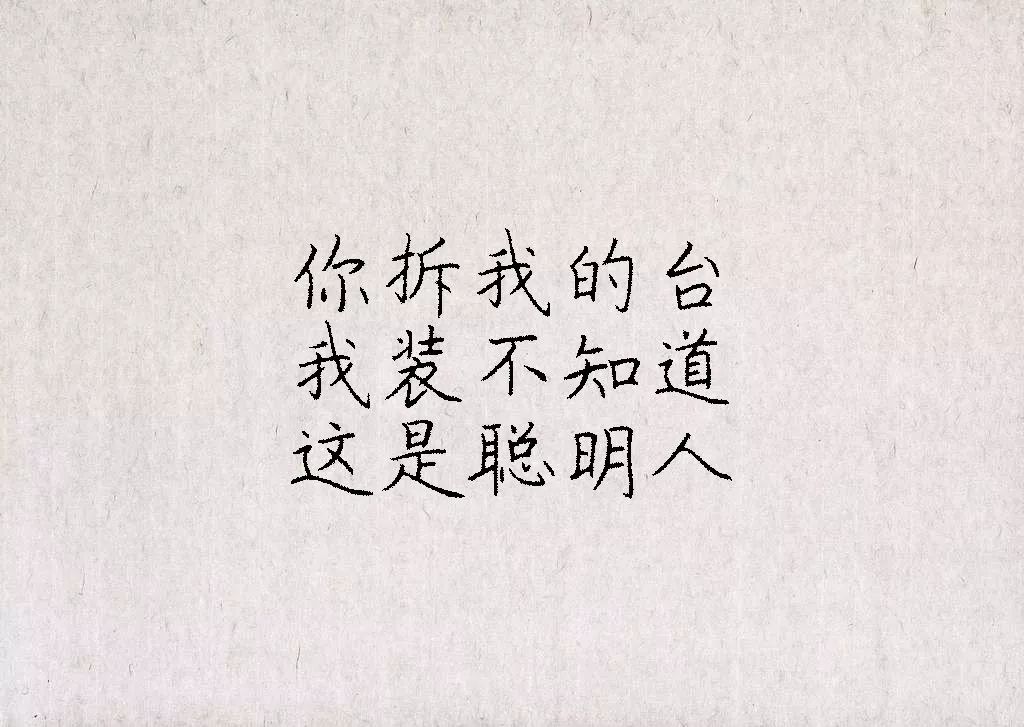 你拆我的台
我装不知道
这是聪明人